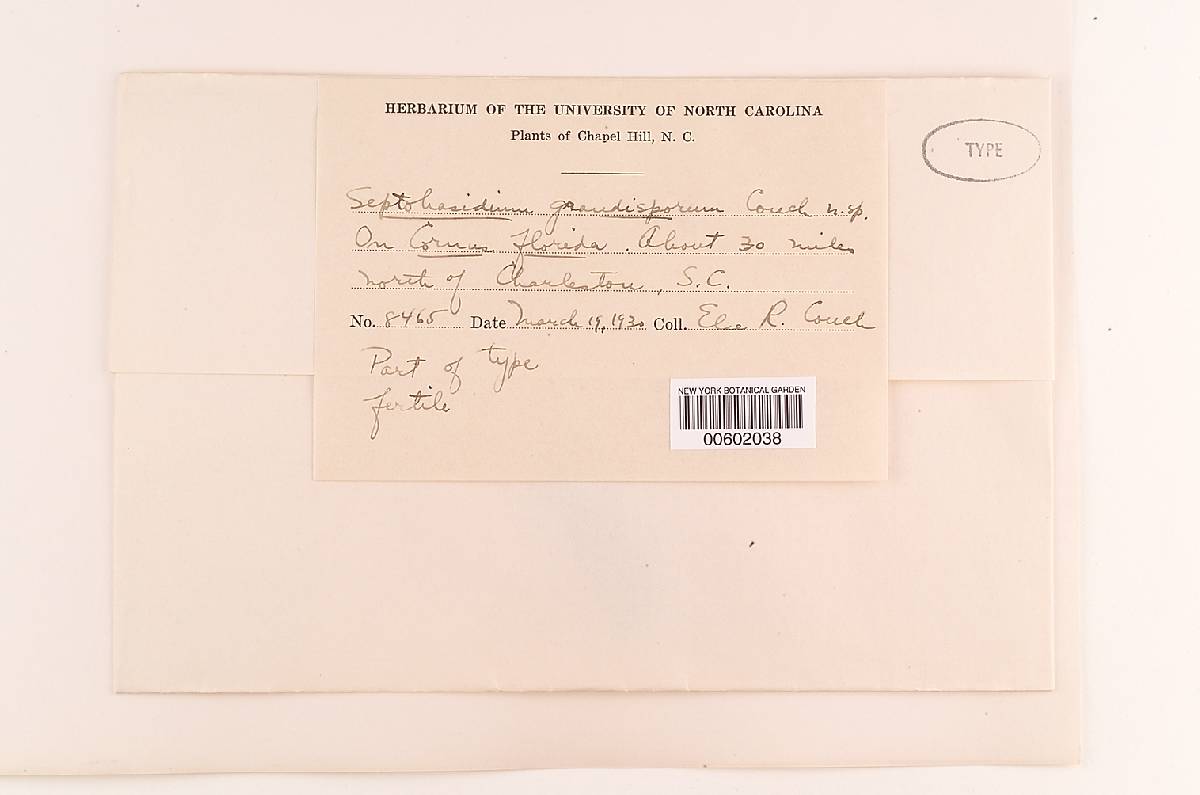 HERBARIUM OF THE UNIVERSITY OF NORTH CAROLINA
Plants of Chapel Hill, N. C.
TYPE
Septobasidium grandisporum Couch n.sp.
On Cornus florida. About 30 miles
north of Charleston, S.C.
No. 8465 Date March 19, 1930 Coll. R. Couch
Part of type
fertile
NEW YORK BOTANICAL GARDEN
00602038